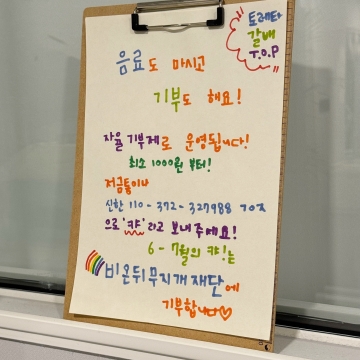 토레타
갈배
T.O.P
음료도 마시고
기부도 해요!
자율기부제로 운영됩니다!
최소 1000원 부터!
저금통이나
신한 110-372-327988 ㄱㅇㅈ
으로 '캬' 라고 보내주세요!
6-7월의 캬!는
비온뒤무지개재단에
기부합니다♡